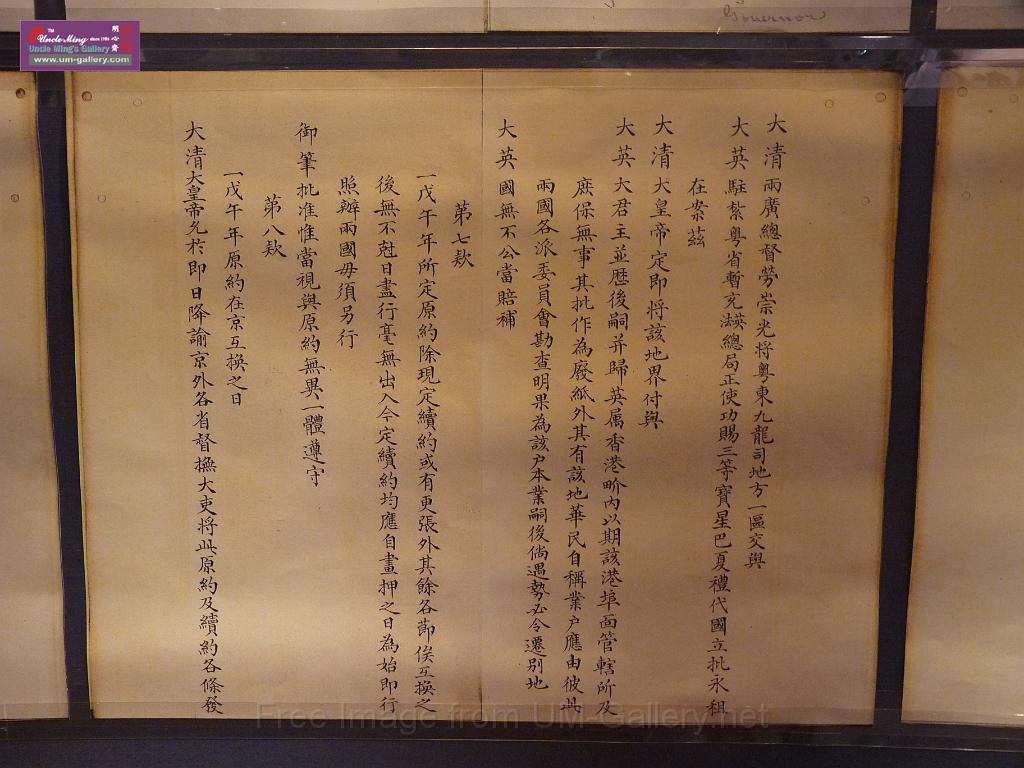 Governor
大清兩廣總督勞崇光将粵東九龍司地方一區交與
大英駐紮粵省暫充英法總局正使功賜三等寶星巴夏禮代國立批永租
在案茲
大清大皇帝定即将該地界付與
大英大君主並歷後嗣并歸英属香港界內以期該港埠面管轄所及
庶保無事其批作為廢紙外其有該地華民自稱業户應由彼此
兩國各派委員會勘查明果為該户本業嗣後倘遇勢必令遷別地
大英國無不公當賠補
第七款
一戊午年所定原約除現定續約或有更張外其餘各節俟互換之
後無不尅日盡行毫無出入今定續約均應自畫押之日為始即行
照辦兩國毋須另行
御筆批准惟當視與原約無異一體遵守
第八款
一戊午年原約在京互換之日
大清大皇帝允於即日降諭京外各省督撫大吏将此原約及續約各條發
TM
Uncle Ming since 1986
明心齋
Uncle Ming's Gallery
www.um-gallery.com
Free Image from UM-Gallery.net